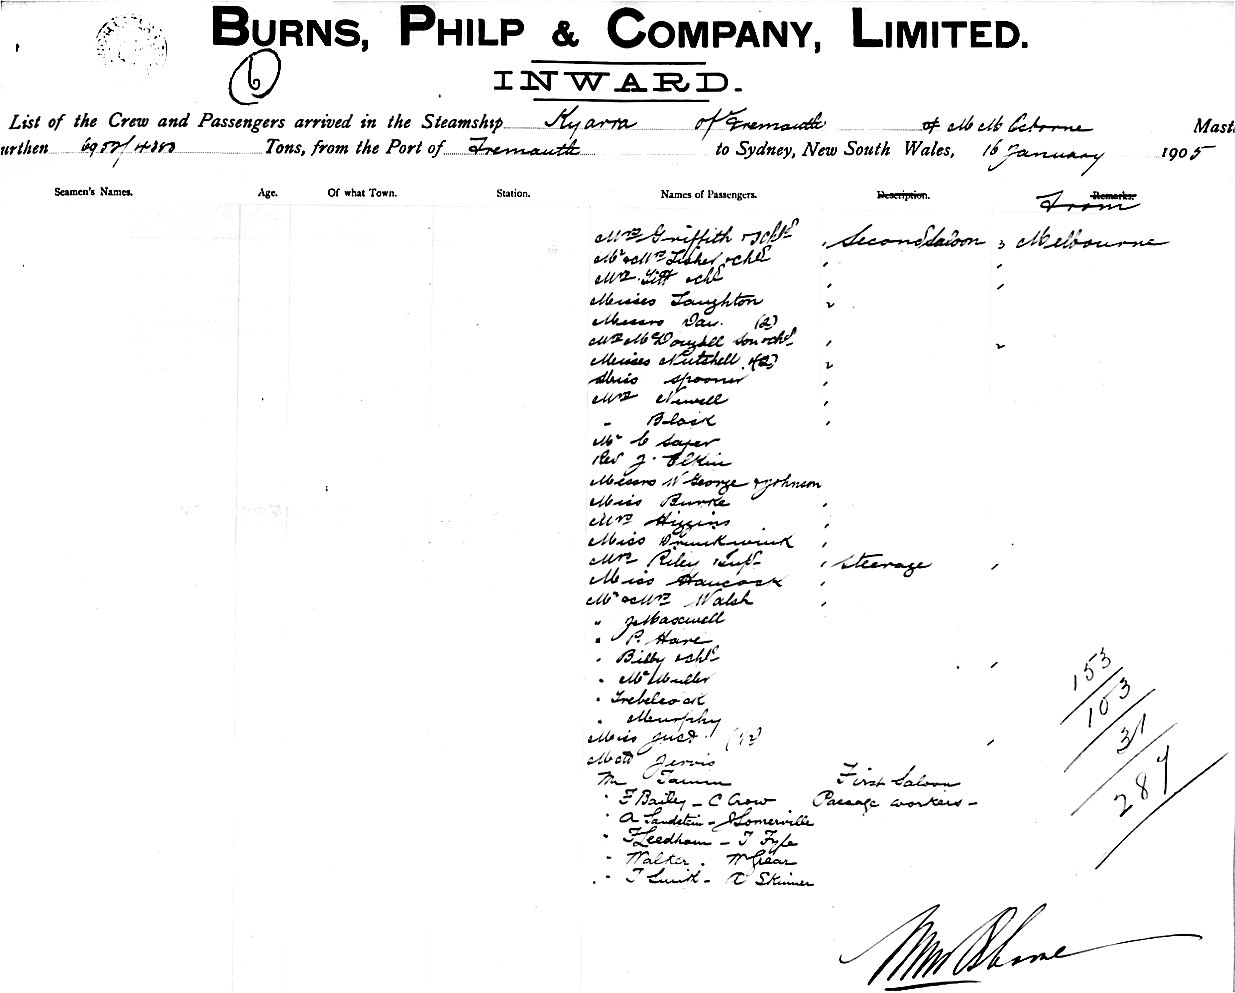 BURNS, PHILP & COMPANY, LIMITED.
6
INWARD.
List of the Crew and Passengers arrived in the Steamship Kyarra of Fremantle of Mast
urthen 6952/4383 Tons, from the Port of Fremantle to Sydney, New South Wales, 16 January 1905
Seamen's Names. Age. Of what Town. Station. Names of Passengers. Description. Remarks.
From
Mrs Griffith & 3 chld , Second Saloon 3 Melbourne
Mr & Mrs Fisher & chld
Mrs Titt & chld
Misses Laughton 2
Messrs Day (2)
Mrs McDougall son & chld
Misses Nutshell (2) 2
Miss Spooner
Mrs Newell
" Black
Mr C Saper
Rev J. Elkin
Messrs W George & Johnson
Miss Burke
Mrs Higgins
Miss
Mrs Riley & inft Steerage
Miss Hancock
Mr & Mrs Walsh
" J Maxwell
" P. Hare
" Bilby & chld
" McMuller
" Trebelcock
" Murphy
Miss Just
Mast Jervis
Mr Tamm First Saloon
" F Bailey - C Crow Passage workers -
" A Sandstein - J Somerville
" F Leedham - T Fyfe
" Walker. W Grear
" T Smith - A Skinner
153
103
31
287